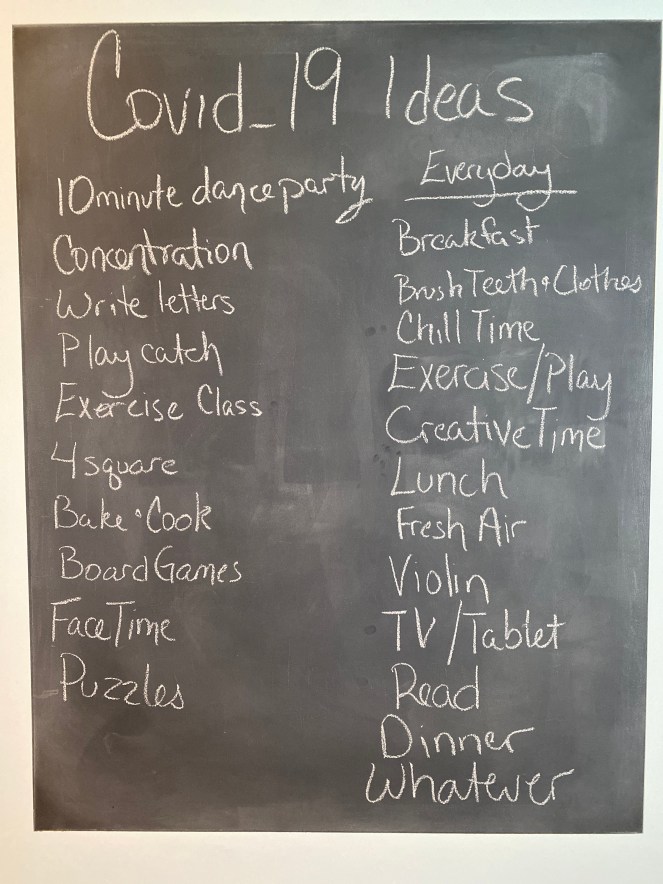 Covid-19 Ideas
10 minute dance party
Concentration
Write letters
Play catch
Exercise Class
4 square
Bake • Cook
Board Games
FaceTime
Puzzles
Everyday
Breakfast
Brush Teeth • Clothes
Chill Time
Exercise/Play
Creative Time
Lunch
Fresh Air
Violin
TV/Tablet
Read
Dinner
Whatever